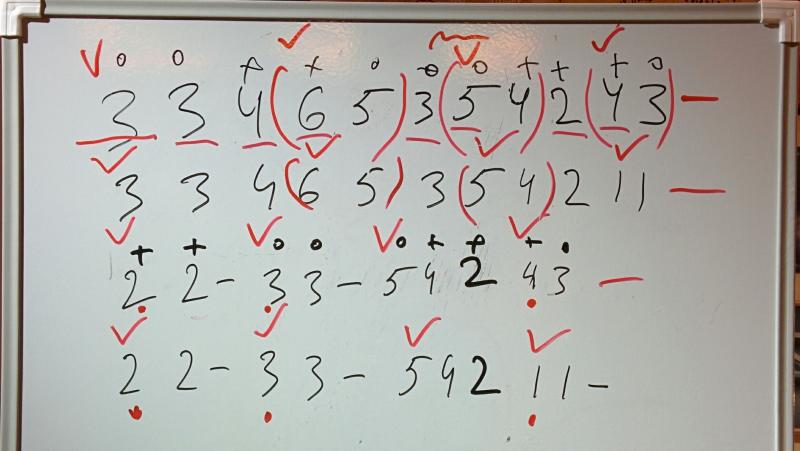 3 3 4 (6 5) 3 (5 4) 2 (4 3) —
3 3 4 (6 5) 3 (5 4) 2 1 1 —
2 2 – 3 3 – 5 4 2 4 3 —
2 2 – 3 3 – 5 4 2 1 1 –